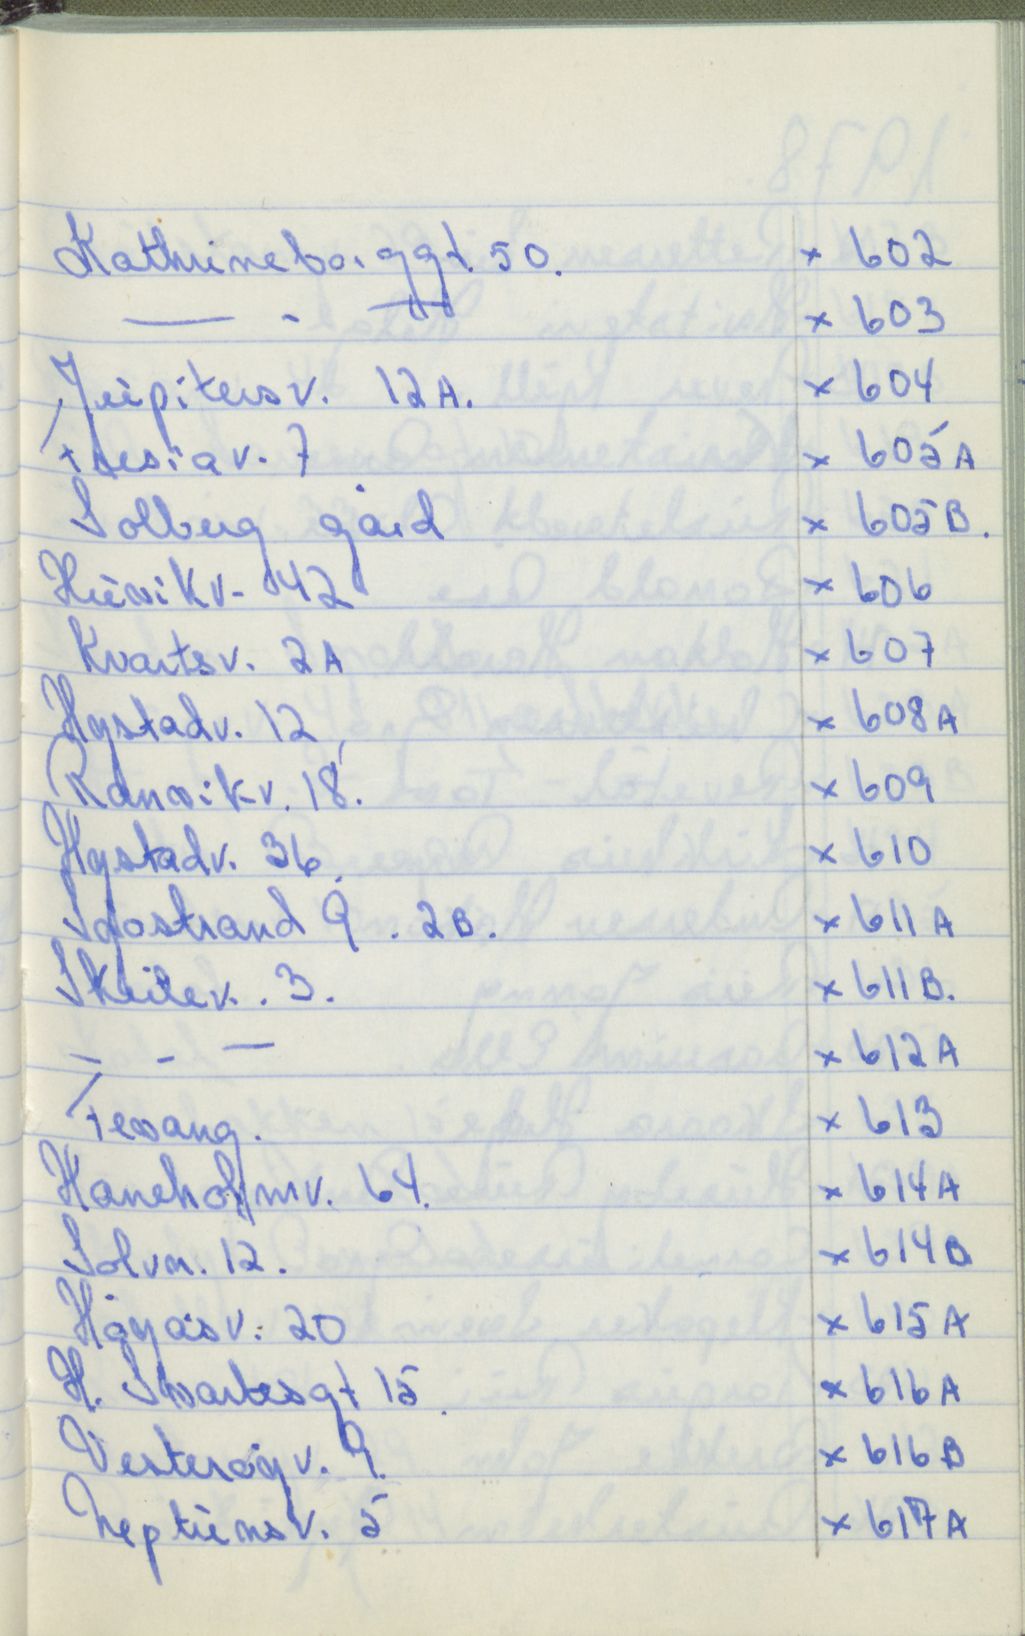 Kathrineborggt. 50. × 602
— - — × 603
Jupitersv. 12A. × 604
Fresiav. 7 × 605A
Solberg gård × 605B.
Huvikv- 42 × 606
Kvartsv. 2A × 607
Hystadv. 12, × 608A
Ranvikv. 18. × 609
Hystadv. 36. × 610
9. 2B. × 611A
3. × 611B.
— - — × 612A
Tevang. × 613
64. × 614A
Solvn. 12. × 614B
Høyåsv. 20 × 615A
H. Svartesgt 15. × 616A
Vesterøyv. 9. × 616B
Neptunsv. 5 × 617A